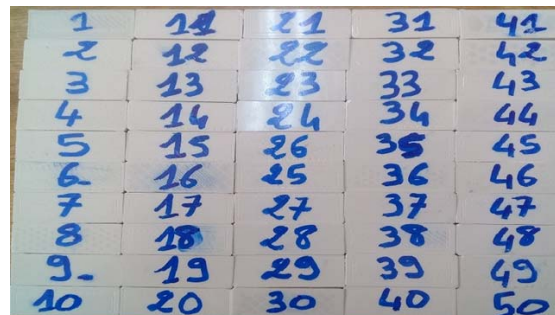 1 11 21 31 41
2 12 22 32 42
3 13 23 33 43
4 14 24 34 44
5 15 26 35 45
6- 16 25 36 46
7 17 27 37 47
8 18 28 38 48
9- 19 29 39 49
10 20 30 40 50